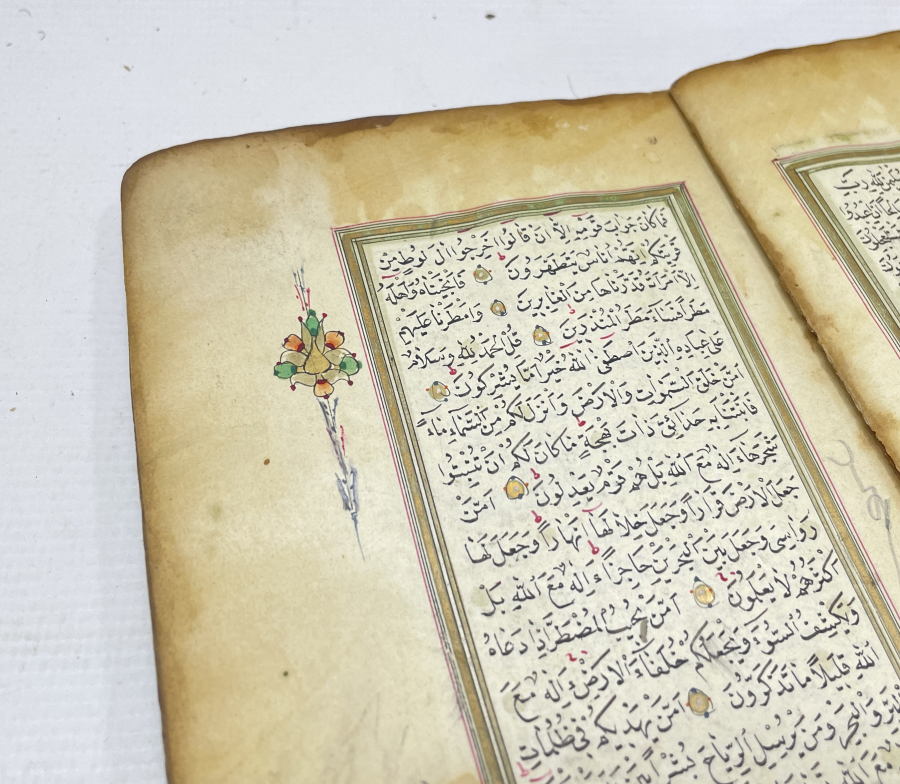 فَمَا كَانَ جَوَابَ قَوْمِهِ إِلَّا أَنْ قَالُوا أَخْرِجُوا آلَ لُوطٍ مِنْ
قَرْيَتِكُمْ إِنَّهُمْ أُنَاسٌ يَتَطَهَّرُونَ فَأَنْجَيْنَاهُ وَأَهْلَهُ
إِلَّا امْرَأَتَهُ قَدَّرْنَاهَا مِنَ الْغَابِرِينَ وَأَمْطَرْنَا عَلَيْهِمْ
مَطَرًا فَسَاءَ مَطَرُ الْمُنْذَرِينَ قُلِ الْحَمْدُ لِلَّهِ وَسَلَامٌ
عَلَى عِبَادِهِ الَّذِينَ اصْطَفَى آللَّهُ خَيْرٌ أَمَّا يُشْرِكُونَ
أَمَّنْ خَلَقَ السَّمٰوَاتِ وَالْأَرْضَ وَأَنْزَلَ لَكُمْ مِنَ السَّمَاءِ مَاءً
فَأَنْبَتْنَا بِهِ حَدَائِقَ ذَاتَ بَهْجَةٍ مَا كَانَ لَكُمْ أَنْ تُنْبِتُوا
شَجَرَهَا ءَإِلٰهٌ مَعَ اللَّهِ بَلْ هُمْ قَوْمٌ يَعْدِلُونَ أَمَّنْ
جَعَلَ الْأَرْضَ قَرَارًا وَجَعَلَ خِلَالَهَا أَنْهَارًا وَجَعَلَ لَهَا
رَوَاسِيَ وَجَعَلَ بَيْنَ الْبَحْرَيْنِ حَاجِزًا ءَإِلٰهٌ مَعَ اللَّهِ بَلْ
أَكْثَرُهُمْ لَا يَعْلَمُونَ أَمَّنْ يُجِيبُ الْمُضْطَرَّ إِذَا دَعَاهُ
وَيَكْشِفُ السُّوءَ وَيَجْعَلُكُمْ خُلَفَاءَ الْأَرْضِ ءَإِلٰهٌ مَعَ
اللَّهِ قَلِيلًا مَا تَذَكَّرُونَ أَمَّنْ يَهْدِيكُمْ فِي ظُلُمَاتِ
الْبَرِّ وَالْبَحْرِ وَمَنْ يُرْسِلُ الرِّيَاحَ بُشْرًا